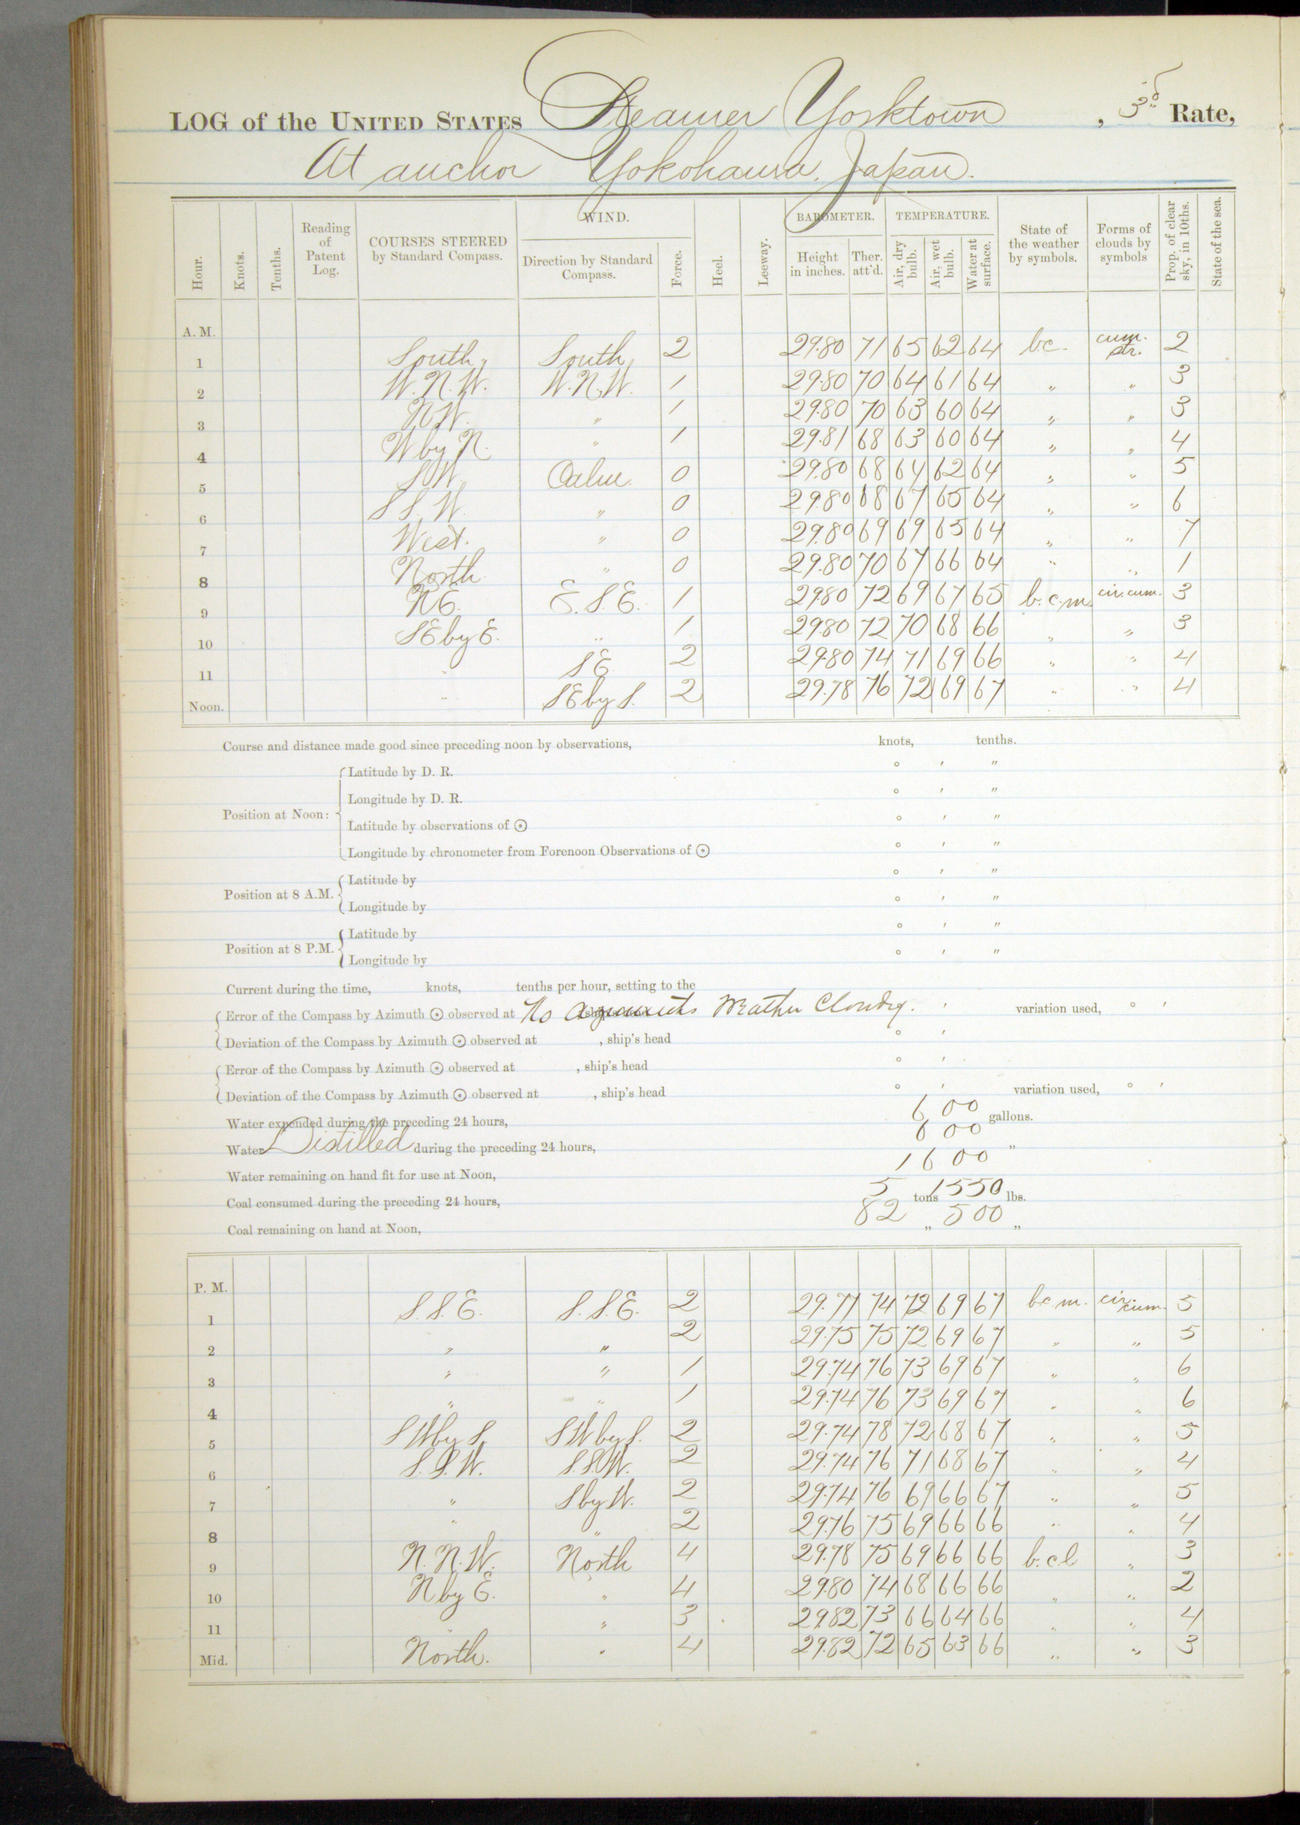 LOG of the UNITED STATES Steamer Yorktown, 3d Rate,
At anchor Yokohama, Japan.
Hour. Knots. Tenths. Reading of Patent Log. COURSES STEERED by Standard Compass. WIND. Direction by Standard Compass. Force. Heel. Leeway. BAROMETER. Height in inches. Ther. att'd. TEMPERATURE. Air, dry bulb. Air, wet bulb. Water at surface. State of the weather by symbols. Forms of clouds by symbols Prop. of clear sky, in 10ths. State of the sea.
A. M.
1 South South 2 29.80 71 65 62 64 bc. cum. str. 2
2 W.N.W. W.N.W. 1 29.80 70 64 61 64 " " 3
3 N.W. " 1 29.80 70 63 60 64 " " 3
4 W by N. " 1 29.81 68 63 60 64 " " 4
5 S.W. Calm 0 29.80 68 64 62 64 " " 5
6 S.S.W. " 0 29.80 68 67 65 64 " " 6
7 West. " 0 29.80 69 69 65 64 " " 7
8 North " 0 29.80 70 67 66 64 " " 1
9 N.E. E.S.E. 1 29.80 72 69 67 65 b.c.m. cir. cum. 3
10 SE by E. " 1 29.80 72 70 68 66 " " 3
11 " SE 2 29.80 74 71 69 66 " " 4
Noon. " SE by S. 2 29.78 76 72 69 67 " " 4
Course and distance made good since preceding noon by observations, knots, tenths.
Position at Noon: Latitude by D. R. ° ′ ″
Longitude by D. R. ° ′ ″
Latitude by observations of ☉ ° ′ ″
Longitude by chronometer from Forenoon Observations of ☉ ° ′ ″
Position at 8 A.M. Latitude by ° ′ ″
Longitude by ° ′ ″
Position at 8 P.M. Latitude by ° ′ ″
Longitude by ° ′ ″
Current during the time, knots, tenths per hour, setting to the
Error of the Compass by Azimuth ☉ observed at No azimuths Weather Cloudy. ′ variation used, ° ′
Deviation of the Compass by Azimuth ☉ observed at , ship's head ° ′
Error of the Compass by Azimuth ☉ observed at , ship's head ° ′
Deviation of the Compass by Azimuth ☉ observed at , ship's head ° ′ variation used, ° ′
Water expended during the preceding 24 hours, 600 gallons.
Water Distilled during the preceding 24 hours, 600 "
Water remaining on hand fit for use at Noon, 1600
Coal consumed during the preceding 24 hours, 5 tons 1550 lbs.
Coal remaining on hand at Noon, 82 " 500 "
P. M.
1 S.S.E. S.S.E. 2 29.77 74 72 69 67 bc m. cir. cum. 5
2 " " 2 29.75 75 72 69 67 " " 5
3 " " 1 29.74 76 73 69 67 " " 6
4 " " 1 29.74 76 73 69 67 " " 6
5 SW by S. SW by S. 2 29.74 78 72 68 67 " " 5
6 S.S.W. S.S.W. 2 29.74 76 71 68 67 " " 4
7 " S by W. 2 29.74 76 69 66 67 " " 5
8 " " 2 29.76 75 69 66 66 " " 4
9 N.N.W. North 4 29.78 75 69 66 66 b.c l " 3
10 N by E. " 4 29.80 74 68 66 66 " " 2
11 " 3 29.82 73 66 64 66 " " 4
Mid. North. " 4 29.82 72 65 63 66 " " 3